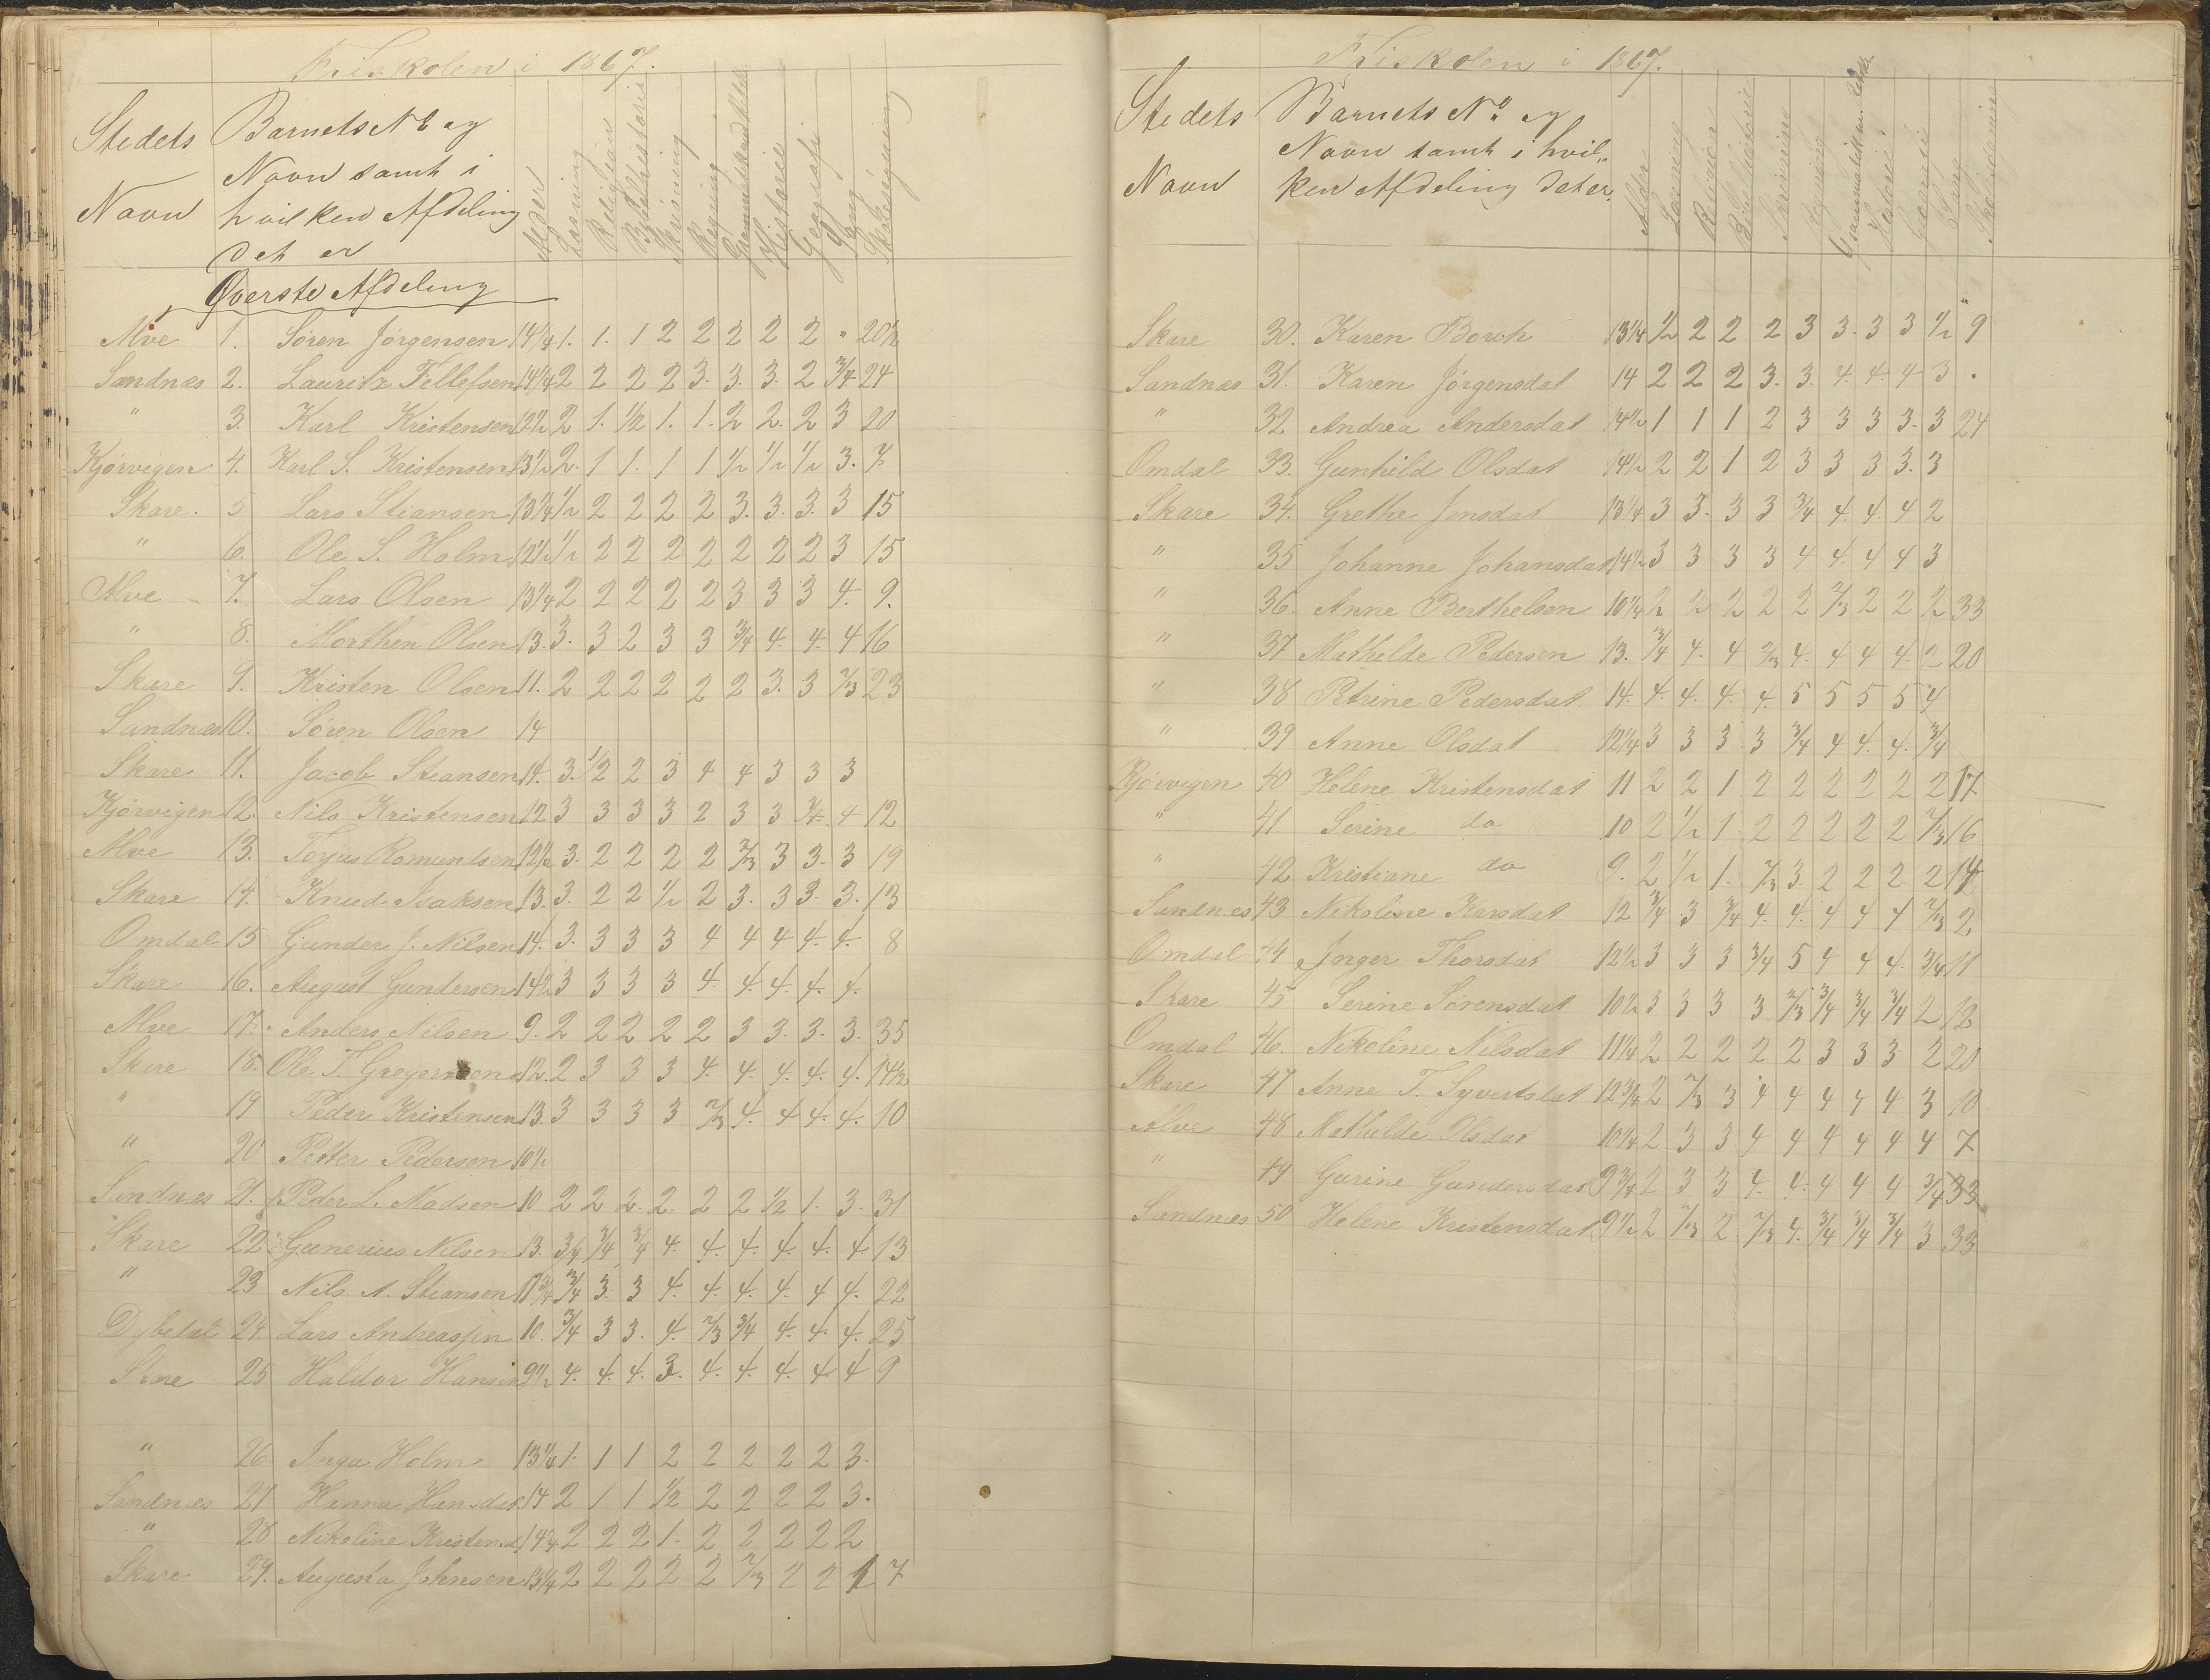 Friskolen i 1867.
Stedets Navn
Barnets No og
Navn samt i
hvilken Afdeling
det er
Alder Læsning Religion Bibelhistorie Skrivning Regning Historie Geografi Sang
Øverste Afdeling
Alve 1. Søren Jørgensen 14 1/4 1. 1. 1 2 2 2 2 2 " 20 1/2
Sandnæs 2. Lauritz Fellefsen 14 1/4 2 2 2 2 3. 3. 3. 2 3/4 24
" 3. Karl Kristensen 12 1/2 2 1. 1/2 1. 1. 2 2. 2 3 20
Kjørvigen 4. Karl S. Kristensen 13 1/2 2. 1 1. 1 1 1/2 1/2 1/2 3. 7
Skare. 5 Lars Stiansen 13 3/4 1/2 2 2 2 2 3. 3. 3. 3 15
" 6. Ole S. Holm 12 1/2 1/2 2 2 2 2 2 2 2 3 15
Alve 7. Lars Olsen 13 1/4 2 2 2 2 2 3 3 3 4. 9.
" 8. Morthen Olsen 13. 3. 3 2 3 3 3/4 4. 4. 4 16
Skare 9. Kristen Olsen 11. 2 2 2 2 2 2 3. 3 2/3 23
Sandnæs 10. Søren Olsen 14
Skare 11. Jacob Stiansen 14. 3. 1/2 2 3 4 4 3 3 3
Kjørvigen 12. Nils Kristensen 12 3 3 3 3 2 3 3 3/4 4 12
Alve 13. Torjus Romundsen 12 1/2 3. 2 2 2 2 2/3 3 3. 3 19
Skare 14. Knud Isaksen 13. 3. 2 2 1/2 2 3. 3 3. 3. 13
Omdal 15 Gunder J. Nilsen 14. 3. 3 3 3 4 4 4 4. 4. 8
Skare 16. August Gundersen 14 1/2 3 3 3 3 4. 4. 4. 4. 4.
Alve 17. Anders Nilsen 9. 2 2 2 2 2 3 3. 3. 3. 35
Skare 18. Ole. T. Gregersen 12. 2 3 3 3 4. 4. 4. 4. 4. 14 1/2
" 19 Peder Kristensen 13. 3 3 3 3 2/3 4. 4 4. 4. 10
" 20 Petter Pedersen 10 1/2
Sandnæs 21. Peder L. Madsen 10 2 2 2. 2. 2 2 1/2 1. 3. 31
Skare 22 Gunerius Nilsen 13. 3/4 3/4 3/4 4. 4. 4. 4. 4. 4. 13
" 23 Nils A. Stiansen 11 3/4 3/4 3. 3 4. 4. 4. 4. 4 4. 22
Dybedal 24. Lars Andreassen 10. 3/4 3 3. 4. 2/3 3/4 4. 4. 4. 25
Skare 25 Haldor Hansen 9 1/2 4. 4. 4. 3. 4. 4. 4. 4 4 9
" 26 Inga Holm 13 1/4 1. 1 1 2 2 2 2 2 3.
Sandnæs 27 Hanna Hansdat. 14 2 1 1 1/2 2 2 2 2 3.
" 28 Nikoline Kristensd. 14 1/4 2 2 2 1. 2 2 2 2 2
Skare 29. Augusta Johnsen 13 1/4 2 2 2 2 2 2/3 2 2 1 7
Friskolen i 1867.
Stedets Navn
Barnets No og
Navn samt i hvil„
ken Afdeling det er.
Alder Læsning Religion Bibelhistorie Skrivning Regning Historie Geografi Sang
Skare 30. Karen Borch 13 1/4 1/2 2 2 2 3 3. 3 3 1/2 9
Sandnæs 31. Karen Jørgensdat 14 2 2 2 3. 3. 4. 4. 4 3 .
" 32 Andrea Andersdat 14 1/2 1 1 1 2 3 3 3 3. 3 24
Omdal 33. Gunhild Olsdat 14 1/2 2 2 1 2 3 3 3 3. 3
Skare 34. Grethe Jensdat 13 1/4 3 3. 3 3 3/4 4. 4. 4 2
" 35 Johanne Johansdat 14 1/2 3 3 3 3 4 4. 4 4 3
" 36. Anne Berthelsen 10 1/4 2 2 2 2 2 2/3 2 2 2 33
" 37 Mathilde Pedersen 13. 3/4 4. 4 2/3 4. 4 4 4. 2 20
" 38 Petrine Pedersdat 14. 4. 4. 4. 4. 5 5 5 5 4
" 39 Anne Olsdat 12 1/4 3 3 3 3 3/4 4 4. 4. 3/4
Kjørvigen 40 Helene Kristensdat 11 2 2 1 2 2 2 2 2 2 17
" 41 Serine do 10 2 1/2 1. 2 2 2 2 2 2/3 16
" 42 Kristiane do 9. 2 1/2 1. 2/3 3. 2 2 2 2 14
Sandnæs 43 Nikoline Larsdat 12 3/4 3 3/4 4. 4. 4 4 4 2/3 2
Omdal 44 Inger Thorsdat 12 1/2 3 3 3 3/4 5 4 4 4. 3/4 11
Skare 45 Serine Sørensdat 10 1/2 3 3 3 3 2/3 3/4 3/4 3/4 2 12
Omdal 46. Nikoline Nilsdat 11 1/4 2 2 2 2 2 3 3 3 2 20
Skare 47 Anne T. Syvertsdat 12 3/4 2 2/3 3 4 4 4 4 4 3 10
Alve 48 Mathilde Olsdat 10 1/4 2 3 3 4 4 4 4 4 4 7
" 49 Gurine Gundersdat 9 3/4 2 3 3 4. 4. 4 4 4 3/4 33
Sandnæs 50 Helene Kristensdat 9 1/2 2 2/3 2 2/3 4. 3/4 3/4 3/4 3 33